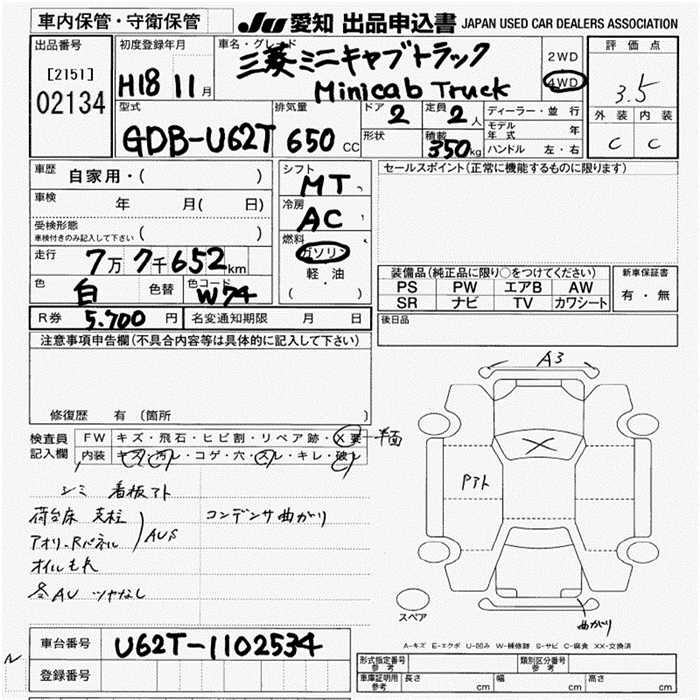 車内保管・守衛保管
JU 愛知 出品申込書 JAPAN USED CAR DEALERS ASSOCIATION
出品番号
[2151]
02134
初度登録年月
H18 11月
車名・グレード
三菱ミニキャブトラック
Minicab Truck
2WD
4WD
評価点
3.5
外装 内装
C C
型式
GDB-U62T
排気量
650 CC
ドア 2
形状
定員 2人
積載 350kg
ディーラー・並行
モデル年式 年
ハンドル 左・右
車歴
自家用・( )
車検 年 月( 日)
受検形態
車検付きのみ記入して下さい ( )
走行 7万7千652km
色 白 色替 色コード W74
シフト MT
冷房 AC
燃料
ガソリン
軽・油
( ・ )
セールスポイント(正常に機能するものに限ります)
装備品(純正品に限り○をつけてください)
PS PW エアB AW
SR ナビ TV カワシート
新車保証書
有・無
R券 5.700円 名変通知期限 月 日
後日品
注意事項申告欄(不具合内容等は具体的に記入して下さい)
修復歴 有(箇所 )
検査員記入欄
FW キズ・飛石・ヒビ割・リペア跡・X要
内装 キズ・汚レ・コゲ・穴・スレ・キレ・破レ
シミ 看板アト
荷台床 支柱
アオリ.Rパネル
AUS
コンデンサ曲がり
オイルもれ
各AU ツヤなし
A3
Pアト
曲がり
スペア
A-キズ E-エクボ U-凹み W-補修跡 S-サビ C-腐食 XX-交換済
車台番号 U62T-1102534
登録番号
形式指定番号 参考
類別区分番号 参考
車庫証明用 参考 長さ cm 幅 cm 高さ cm